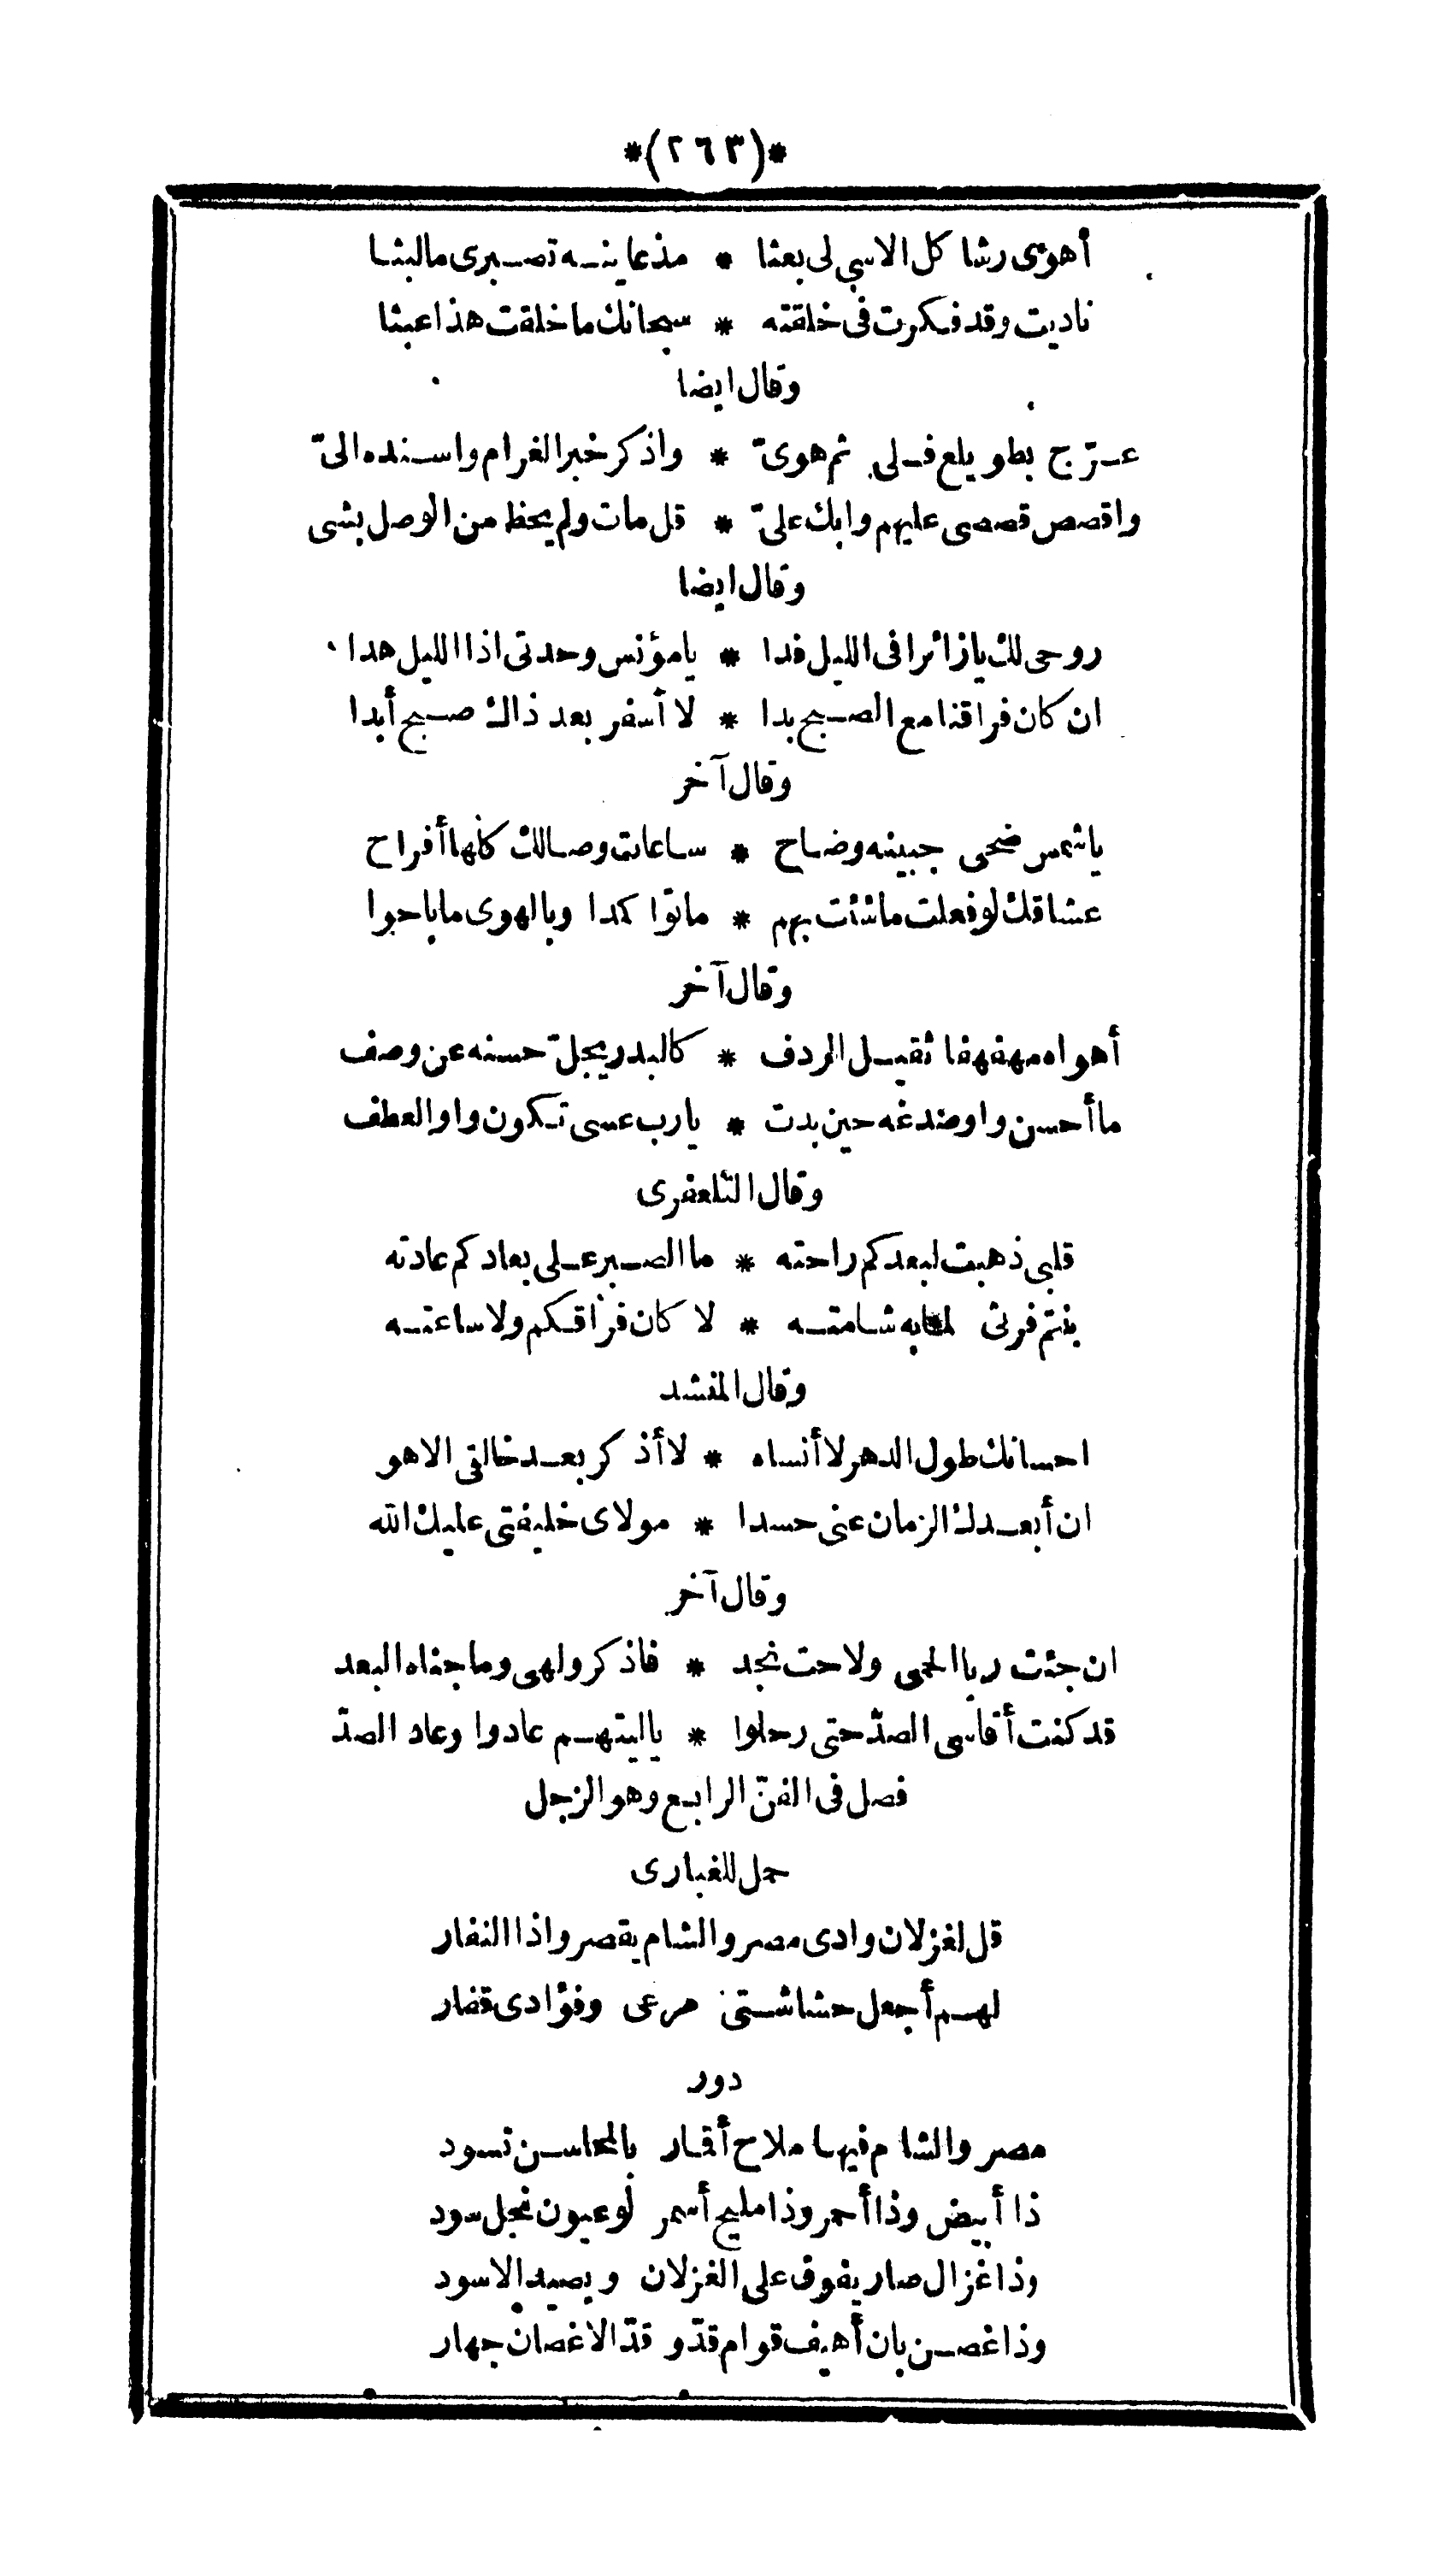 *(٢٦٣)*
أهوى رشا كل الاسى لى بعثا * مذ عاينه تصبرى مالبثا
ناديت وقد فكرت فى خلقته * سبحانك ما خلقت هذا عبثا
وقال ايضا
عرّج بطويلع فلى ثم هوىّ * واذكر خبر الغرام واسنده الىّ
واقصص قصصى عليهم وابك علىّ * قل مات ولم يحظ من الوصل بشى
وقال ايضا
روحى لك يا زائرا فى الليل فدا * يا مؤنس وحدتى اذا الليل هدا
ان كان فراقنا مع الصبح بدا * لا أسفر بعد ذاك صبح أبدا
وقال آخر
ياشمس ضحى جبينه وضاح * ساعات وصالك كلها أفراح
عشاقك لو فعلت ماشئت بهم * ماتوا كمدا وبالهوى ما باحوا
وقال آخر
أهواه مهفهفا ثقيل الردف * كالبدر يجلّ حسنه عن وصف
ما أحسن واو صدغه حين بدت * يارب عسى تكون واو العطف
وقال التلعفرى
قلبى ذهبت لبعدكم راحته * ما الصبر على بعادكم عادته
بنتم فرثى شامته * لا كان فراقكم ولا ساعته
وقال المنشد
احسانك طول الدهر لا أنساه * لا أذكر بعد خالقى الا هو
ان أبعدك الزمان عنى حسدا * مولاى خليفتى عليك الله
وقال آخر
ان جئت ربا الحمى ولاحت نجد * فاذكر ولهى وما جناه البعد
قد كنت أقاسى الصدّ حتى رحلوا * ياليتهم عادوا وعاد الصدّ
فصل فى الفنّ الرابع وهو الزجل
حمل للغبارى
قل لغزلان وادى مصر والشام يقصروا ذا النفار
لهم أجعل حشاشتى مرعى وفؤادى قفار
دور
مصر والشام فيها ملاح أقمار بالمحاسن تسود
ذا أبيض وذا أحمر وذا مليح أسمر لو عيون نجل سود
وذا غزال صار يفوق على الغزلان ويصيد الاسود
وذا غصن بان أهيف قوام قدّو قدّ الاغصان جهار